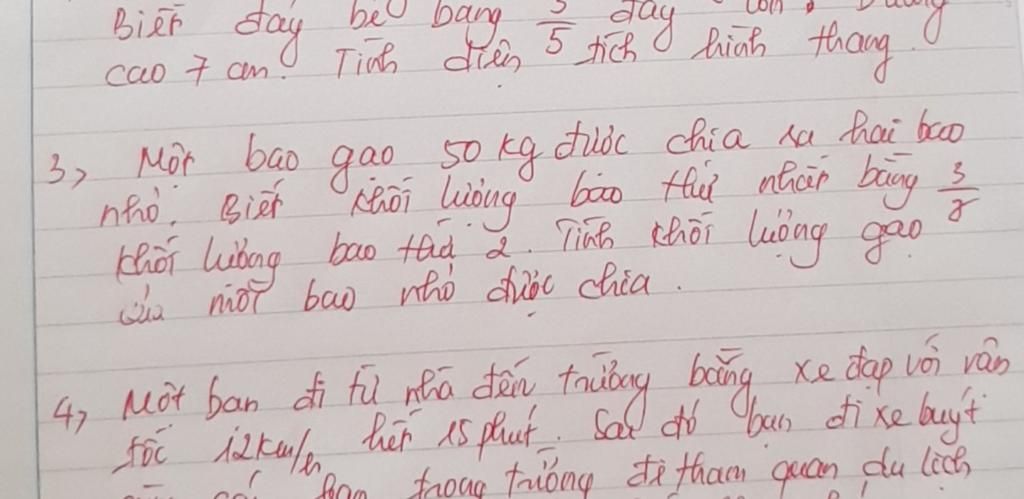 Biết đáy bé bằng 3/5 đáy lớn,
cao 7 cm. Tính diện tích hình thang.
3, Một bao gạo 50 kg được chia ra hai bao
nhỏ. Biết khối lượng bao thứ nhất bằng 3/
khối lượng bao thứ 2. Tính khối lượng gạo
của một bao nhỏ được chia.
4, Một bạn đi từ nhà đến trường bằng xe đạp với vận
tốc 12km/h hết 15 phút. Sau đó bạn đi xe buýt
trong trường đi tham quan du lịch